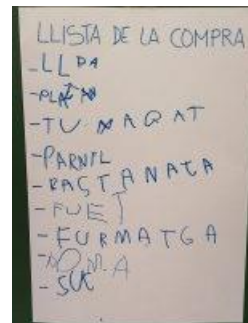 LLISTA DE LA COMPRA
-LL
-PLATAN
-TUMAQAT
-PARNIL
-PASTANATA
-FUET
-FURMATGA
-POMA
-SUC